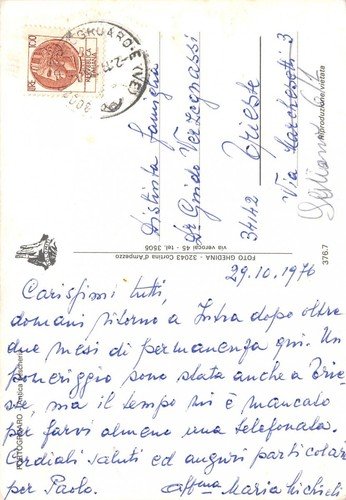 100
OGRUARO-E (VE)
Distinta famiglia
Dr Guido Verzegnassi
34142 Trieste
Via Marchesetti 3
Riproduzione vietata
376.7
FOTO GHEDINA - 32043 Cortina d'Ampezzo
via verocai 45 - tel. 3506
PORTOGRUARO - Antica Pescheria
29.10.1976
Carissimi tutti,
domani ritorno a Intra dopo oltre
due mesi di permanenza qui. Un
pomeriggio sono stata anche a Trie-
ste, ma il tempo mi è mancato
per farvi almeno una telefonata.
Cordiali saluti ed auguri particolari
per Paolo. aff.ma Maria